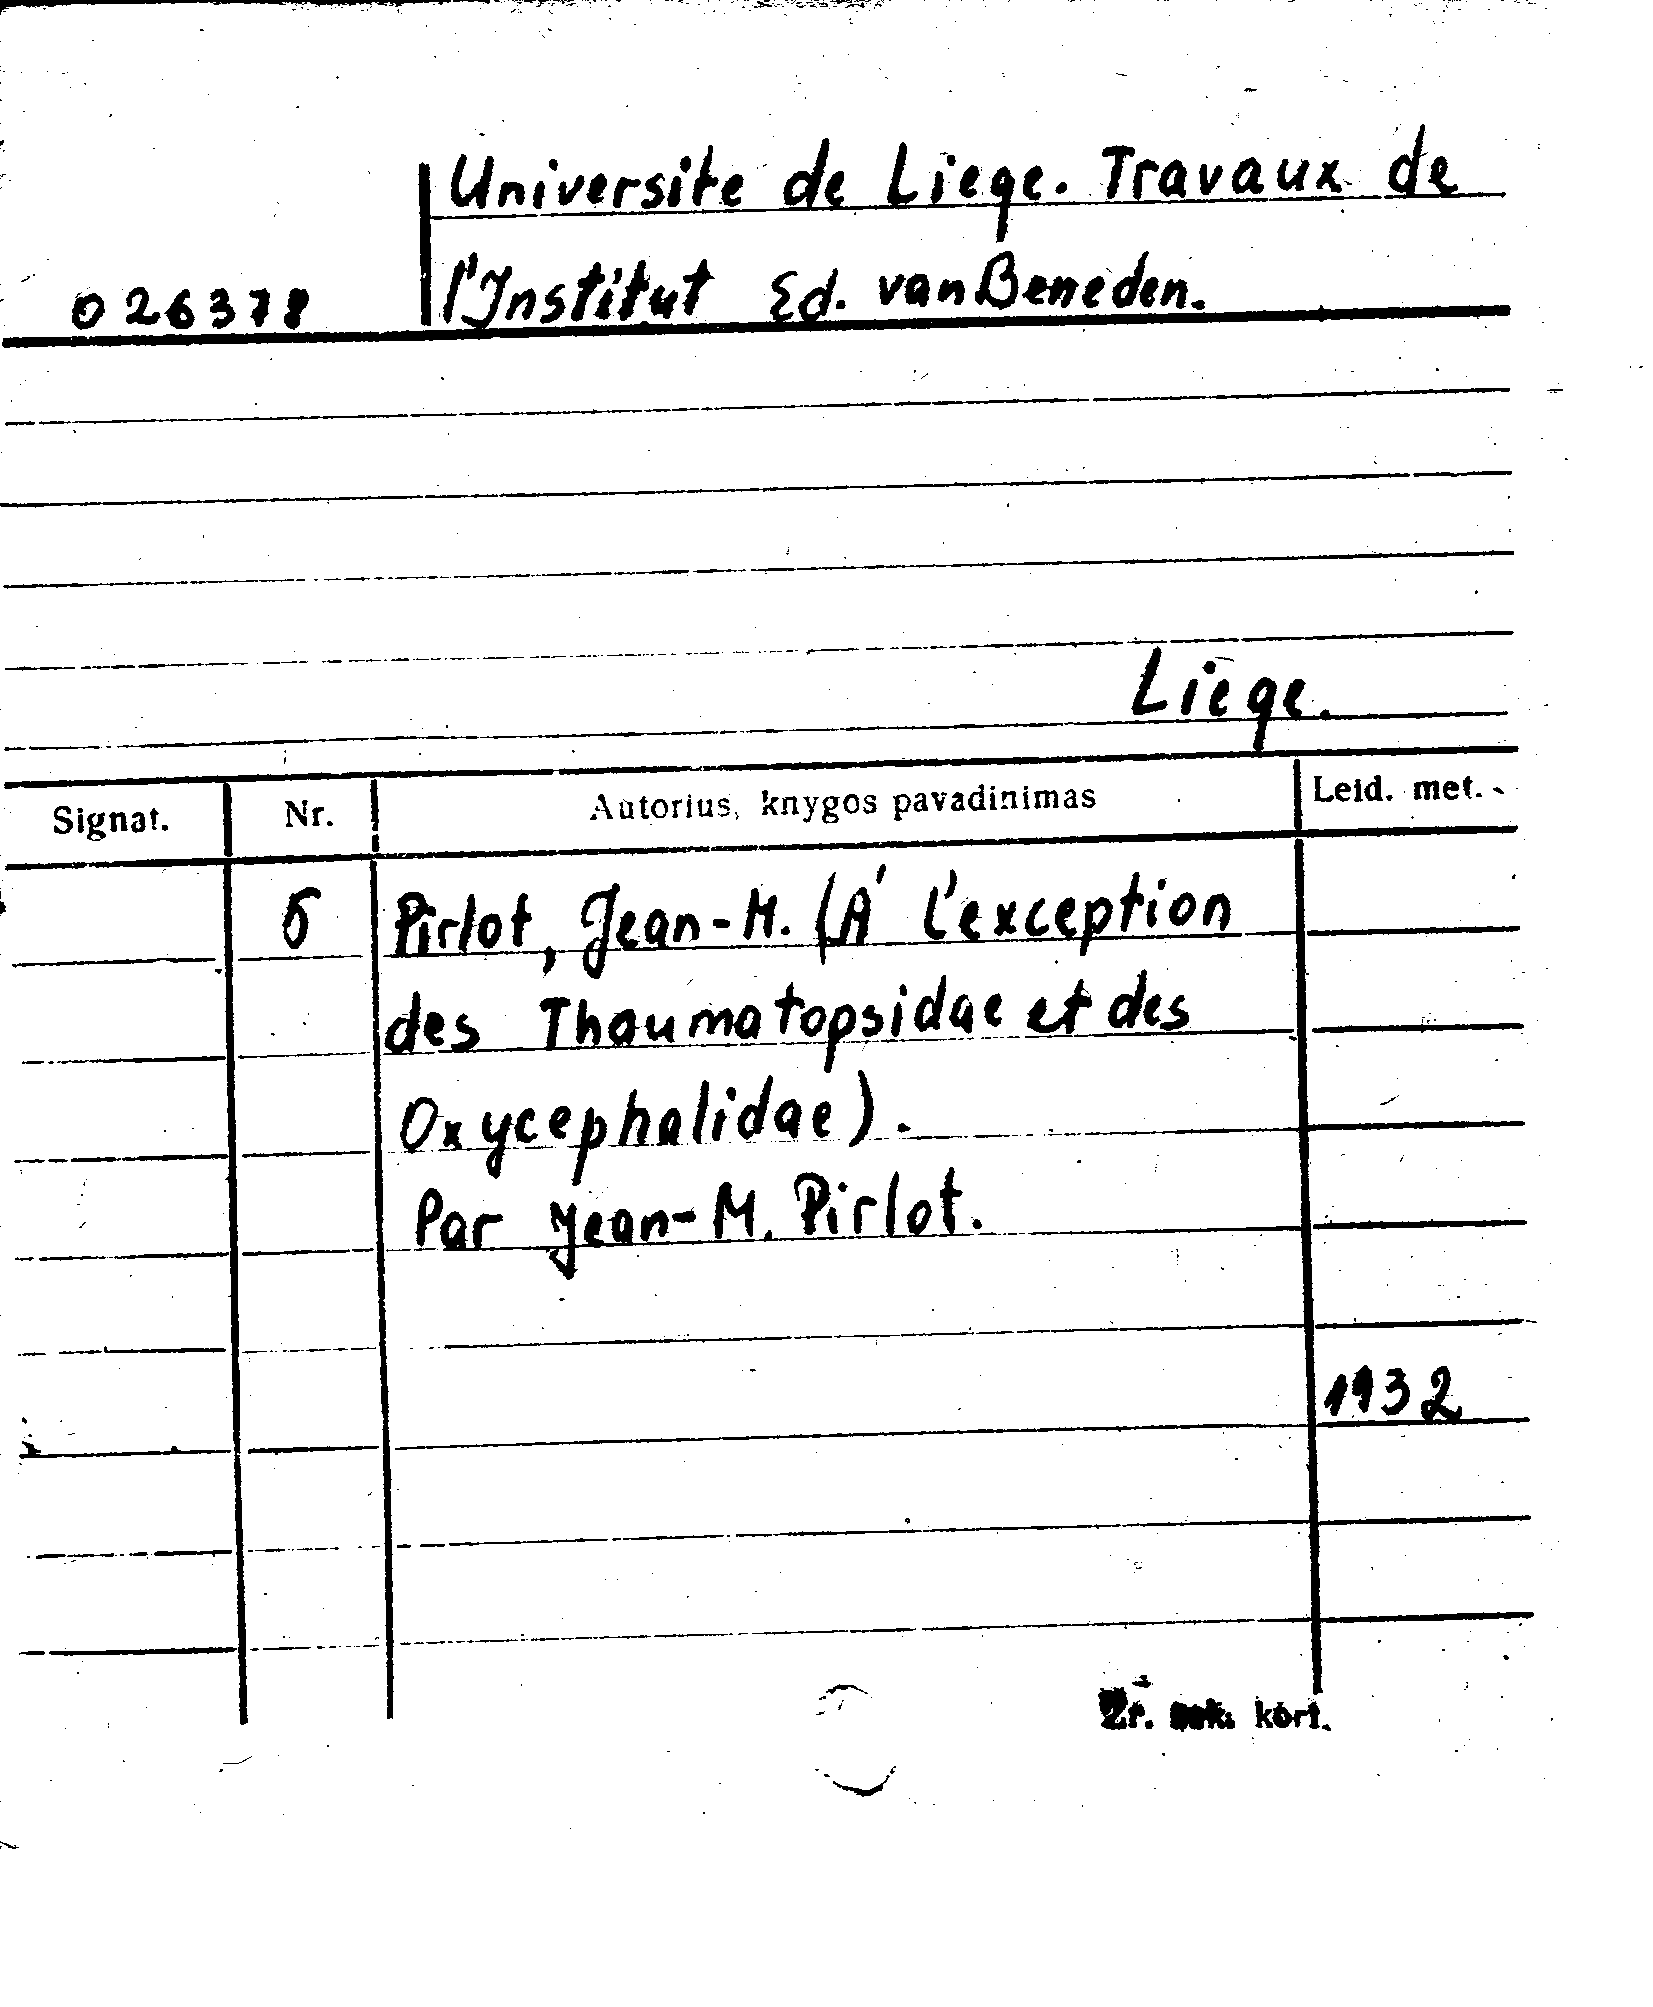 Universite de Liege. Travaux de
026378 l'Institut Ed. van Beneden.
Liege.
Signat. Nr. Autorius, knygos pavadinimas Leid. met.
6 Pirlot, Jean-M. (A' l'exception
des Thaumatopsidae et des
Oxycephalidae).
Par Jean-M. Pirlot.
1932
Žr. kort.